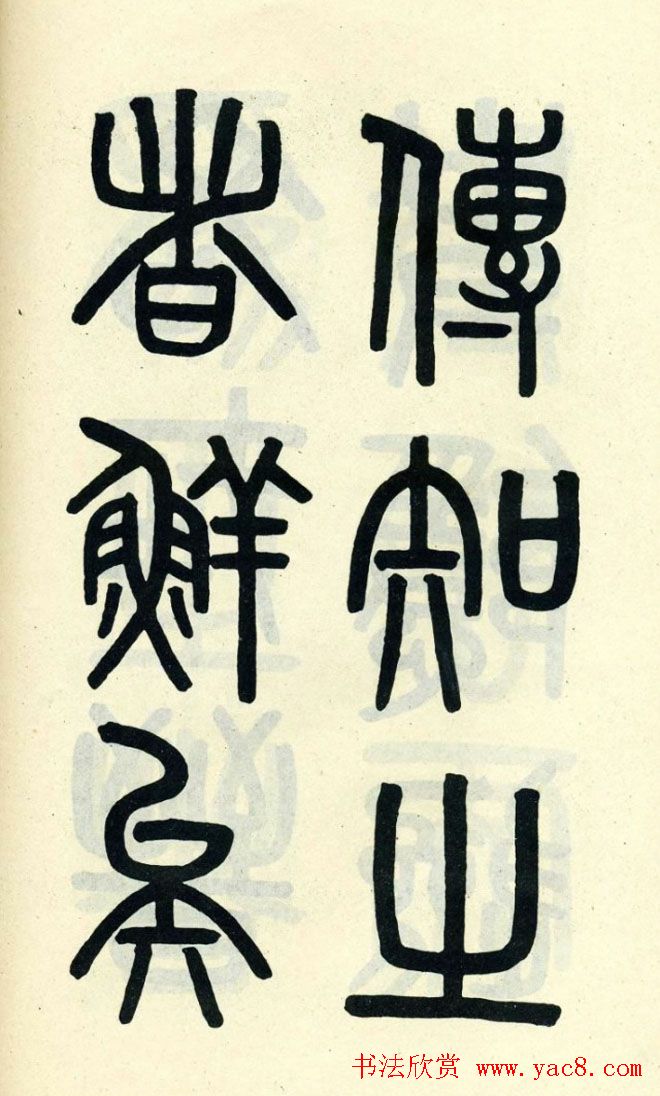 傳知之
者鮮矣
书法欣赏 www.yac8.com